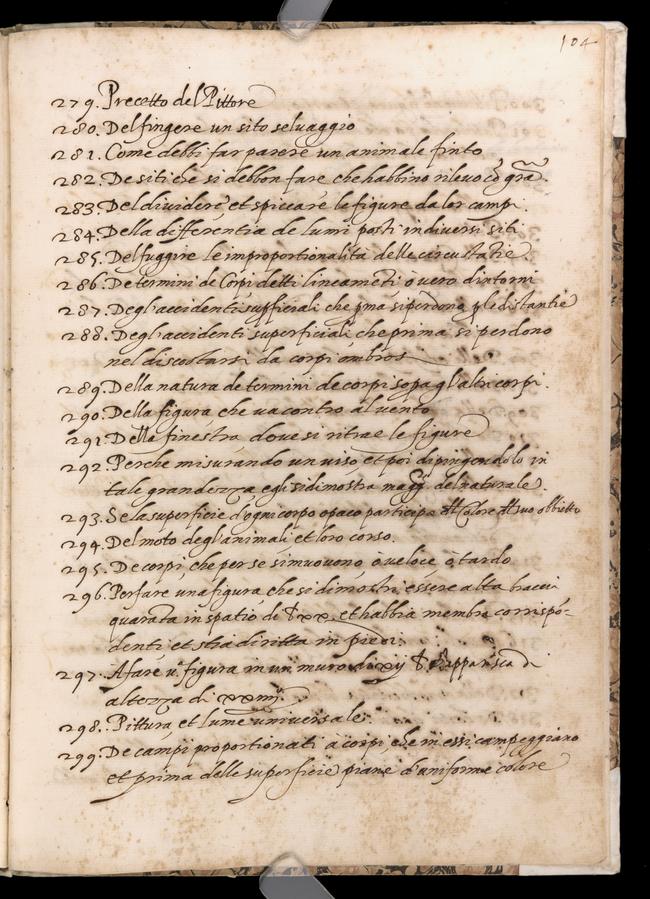 104
279. Precetto del Pittore
280. Del fingere un sito seluaggio
281. Come debbi far parere un animale finto
282. De siti che si debbon fare che habbino rilevo cō grā.
283. Del dividere et spiccare le figure da lor campi.
284. Della differentia de lumi posti in diversi siti
285. Del fuggire le improportionalità delle circustatie.
286. De termini de Corpi detti lineamēti ò vero dintorni
287. Degl'accidenti supficiali che pma si perdono p le distantie
288. Degl'accidenti superficiali che prima si perdono
nel discostarsi da corpi ombrosi
289. Della natura de termini de corpi sopa gl'altri corpi.
290. Della figura che va contro al vento
291. Della finestra dove si ritrae le figure
292. Perche misurando un viso et poi dipingendolo in
tale grandezza egli si dimostra magg. del naturale.
293. Se la superficie d'ogni corpo opaco participa del Colore del suo obbietto
294. Del moto degl'animali et loro corso.
295. De corpi che per se si muovono ò veloce ò tardo
296. Per fare una figura che si dimostri essere alta braccia
quarāta in spatio di b xx. et habbia membra corrispō-
denti et stia diritta in piedi.
297. A fare uᵃ figura in un muro di xij b ch'apparisca di
altezza di xxiiij.
298. Pittura et lume universale.
299. De campi proportionati à corpi che in essi campeggiano
et prima delle superficie piane d'uniforme colore